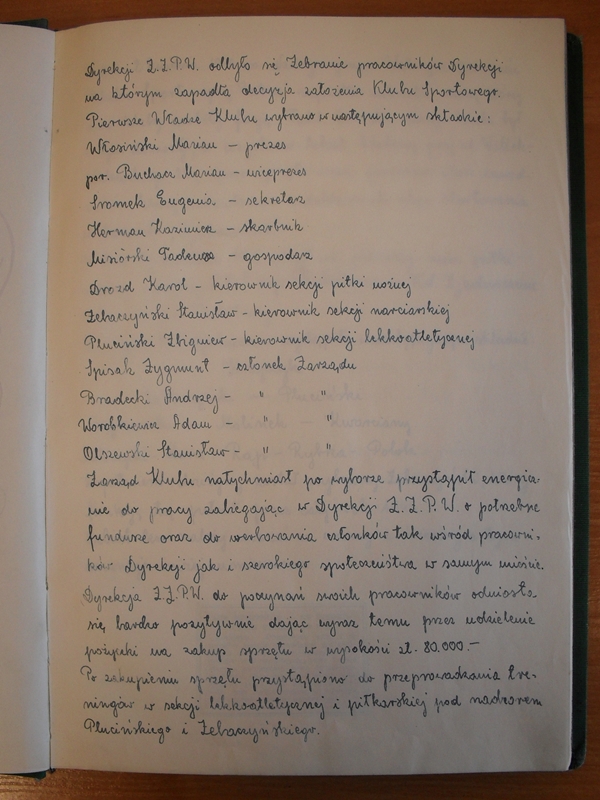 Dyrekcji Z.Z.P.W. odbyło się Zebranie pracowników Dyrekcji
na którym zapadła decyzja założenia Klubu Sportowego.
Pierwsze Władze Klubu wybrano w następującym składzie:
Włosiński Marian – prezes
por. Buchacz Marian – wiceprezes
Sromek Eugenia – sekretarz
Herman Kazimierz – skarbnik
Misiórski Tadeusz – gospodarz
Drozd Karol – kierownik sekcji piłki nożnej
Zebaczyński Stanisław – kierownik sekcji narciarskiej
Pluciński Zbigniew – kierownik sekcji lekkoatletycznej
Spisak Zygmunt – członek Zarządu
Bradecki Andrzej – " "
Worobkiewicz Adam – " "
Olszewski Stanisław – " "
Zarząd Klubu natychmiast po wyborze przystąpił energicz-
nie do pracy zabiegając w Dyrekcji Z.Z.P.W. o potrzebne
fundusze oraz do werbowania członków tak wśród pracowni-
ków Dyrekcji jak i szerokiego społeczeństwa w samym mieście.
Dyrekcja Z.Z.P.W. do poczynań swoich pracowników odniosła
się bardzo pozytywnie dając wyraz temu przez udzielenie
pożyczki na zakup sprzętu w wysokości zł. 80.000.–
Po zakupieniu sprzętu przystąpiono do przeprowadzania tre-
ningów w sekcji lekkoatletycznej i piłkarskiej pod nadzorem
Plucińskiego i Zebaczyńskiego.